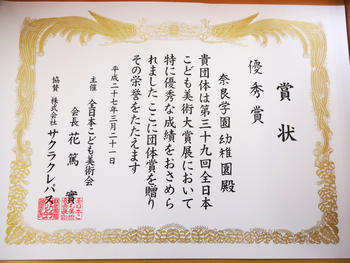 賞状
優秀賞
奈良学園幼稚園殿
貴団体は第三十九回全日本
こども美術大賞展において
特に優秀な成績をおさめら
れました ここに団体賞を贈り
その栄誉をたたえます
平成二十七年三月二十一日
主催 全日本こども美術会
会長 花篤 實
協賛 株式会社サクラクレパス